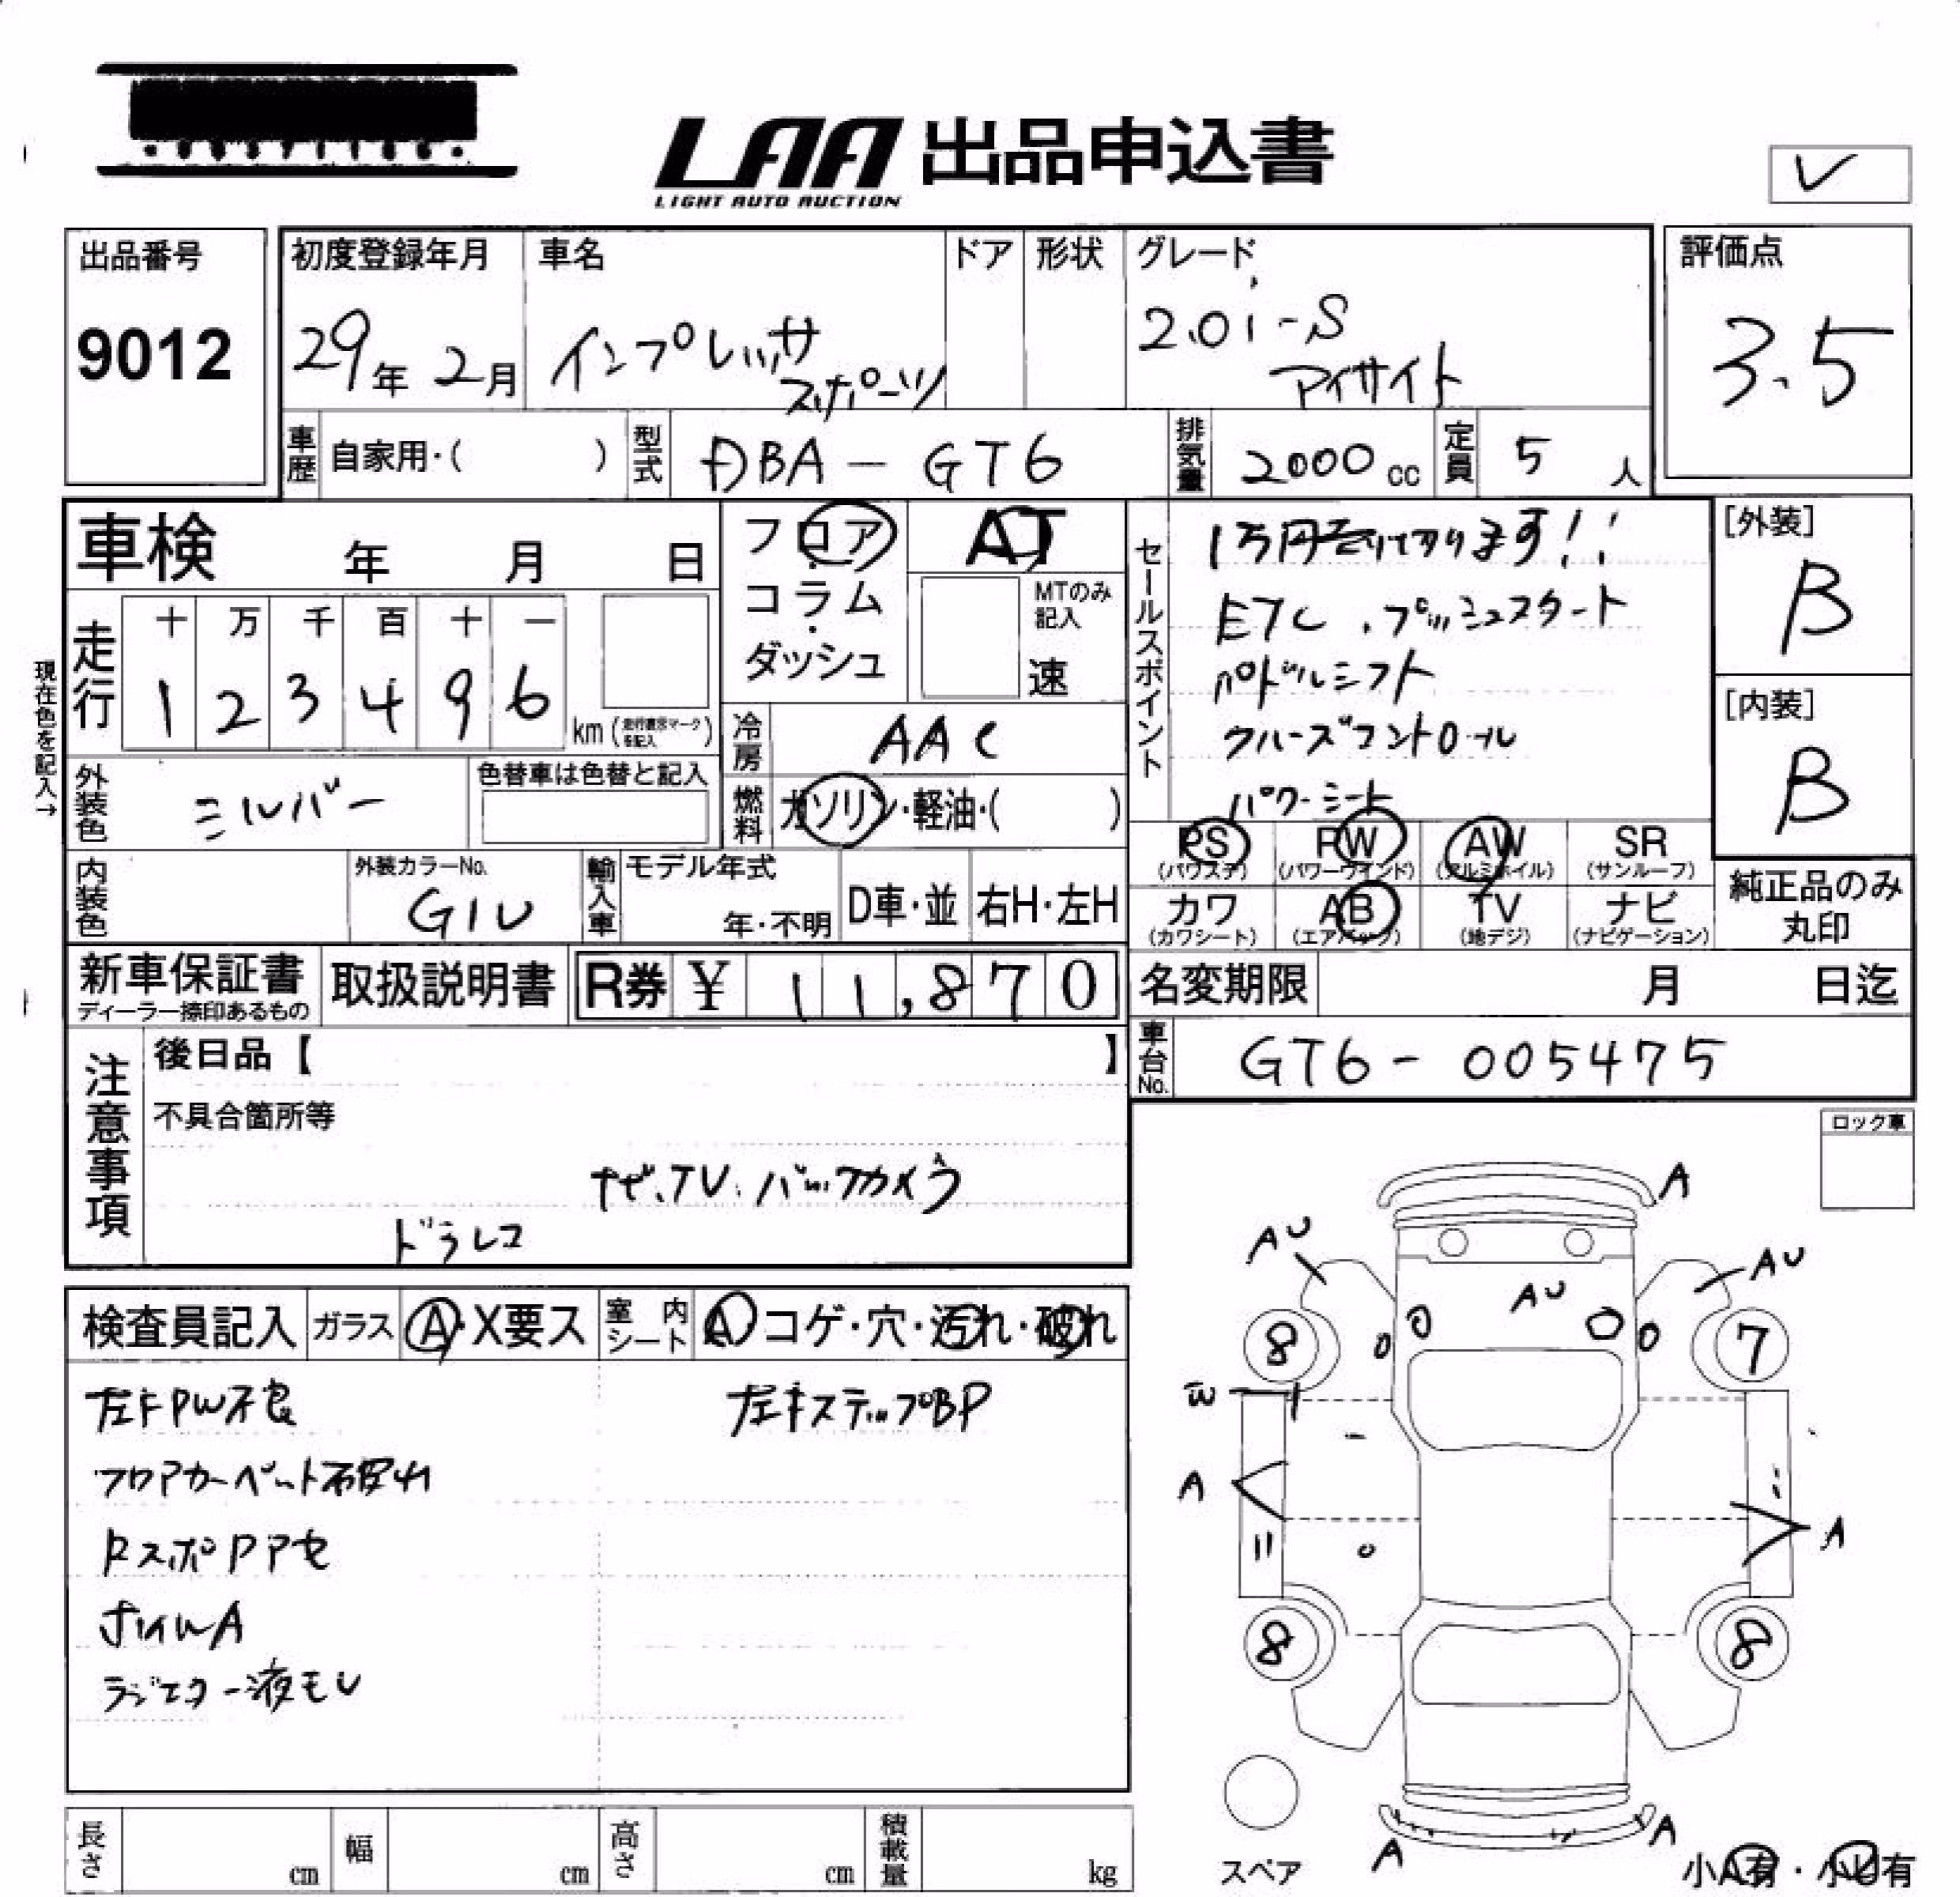 LAA 出品申込書
LIGHT AUTO AUCTION
レ
出品番号
9012
初度登録年月
29年 2月
車名
インプレッサ
スポーツ
ドア
形状
グレード
2.0i-S
アイサイト
評価点
3.5
車歴
自家用・( )
型式
DBA-GT6
排気量
2000 cc
定員
5 人
車検 年 月 日
フロア
コラム
ダッシュ
AT
MTのみ
記入
速
セールスポイント
1万円売り切ります!!
ETC.プッシュスタート
パドルシフト
クルーズコントロール
パワーシート
[外装]
B
[内装]
B
現在色を記入→
走行
十 万 千 百 十 一
1 2 3 4 9 6
km (走行表示マークを記入)
冷房
AAC
外装色
シルバー
色替車は色替と記入
燃料
ガソリン・軽油・( )
PS
(パワステ)
PW
(パワーウインド)
AW
(アルミホイル)
SR
(サンルーフ)
カワ
(カワシート)
AB
(エアバッグ)
TV
(地デジ)
ナビ
(ナビゲーション)
純正品のみ
丸印
内装色
外装カラーNo.
G1U
輸入車
モデル年式
年・不明
D車・並
右H・左H
新車保証書
ディーラー捺印あるもの
取扱説明書
R券 ¥ 11,870
名変期限 月 日迄
車台No.
GT6-005475
注意事項
後日品【 】
不具合箇所等
ナビ.TV.バックカメラ
ドラレコ
ロック車
検査員記入
ガラス
A・X要ス
室内シート
A コゲ・穴・汚れ・破れ
左FPW不良
左キステップBP
フロアカーペット破れ
RスポPアセ
ホイルA
ラジエター液モレ
A
AU
AU
AU
8
7
W
A
A
8
8
A
A
スペア
小A有・小U有
長さ cm
幅 cm
高さ cm
積載量 kg